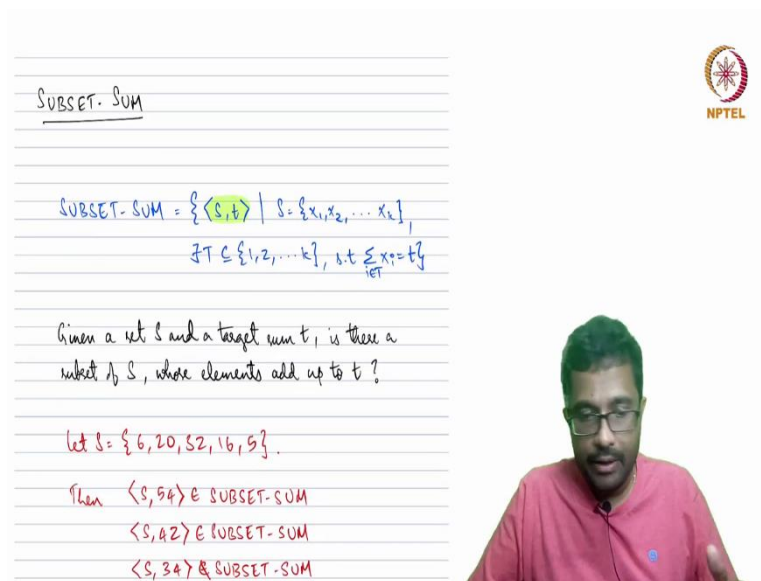 SUBSET-SUM
NPTEL
SUBSET-SUM = {⟨S,t⟩ | S={x₁,x₂,...xₖ},
∃T⊆{1,2,...k}, s.t Σ_{i∈T} xᵢ=t}
Given a set S and a target sum t, is there a
subset of S, whose elements add up to t?
Let S = {6,20,32,16,5}.
Then ⟨S,54⟩ ∈ SUBSET-SUM
⟨S,42⟩ ∈ SUBSET-SUM
⟨S,34⟩ ∉ SUBSET-SUM